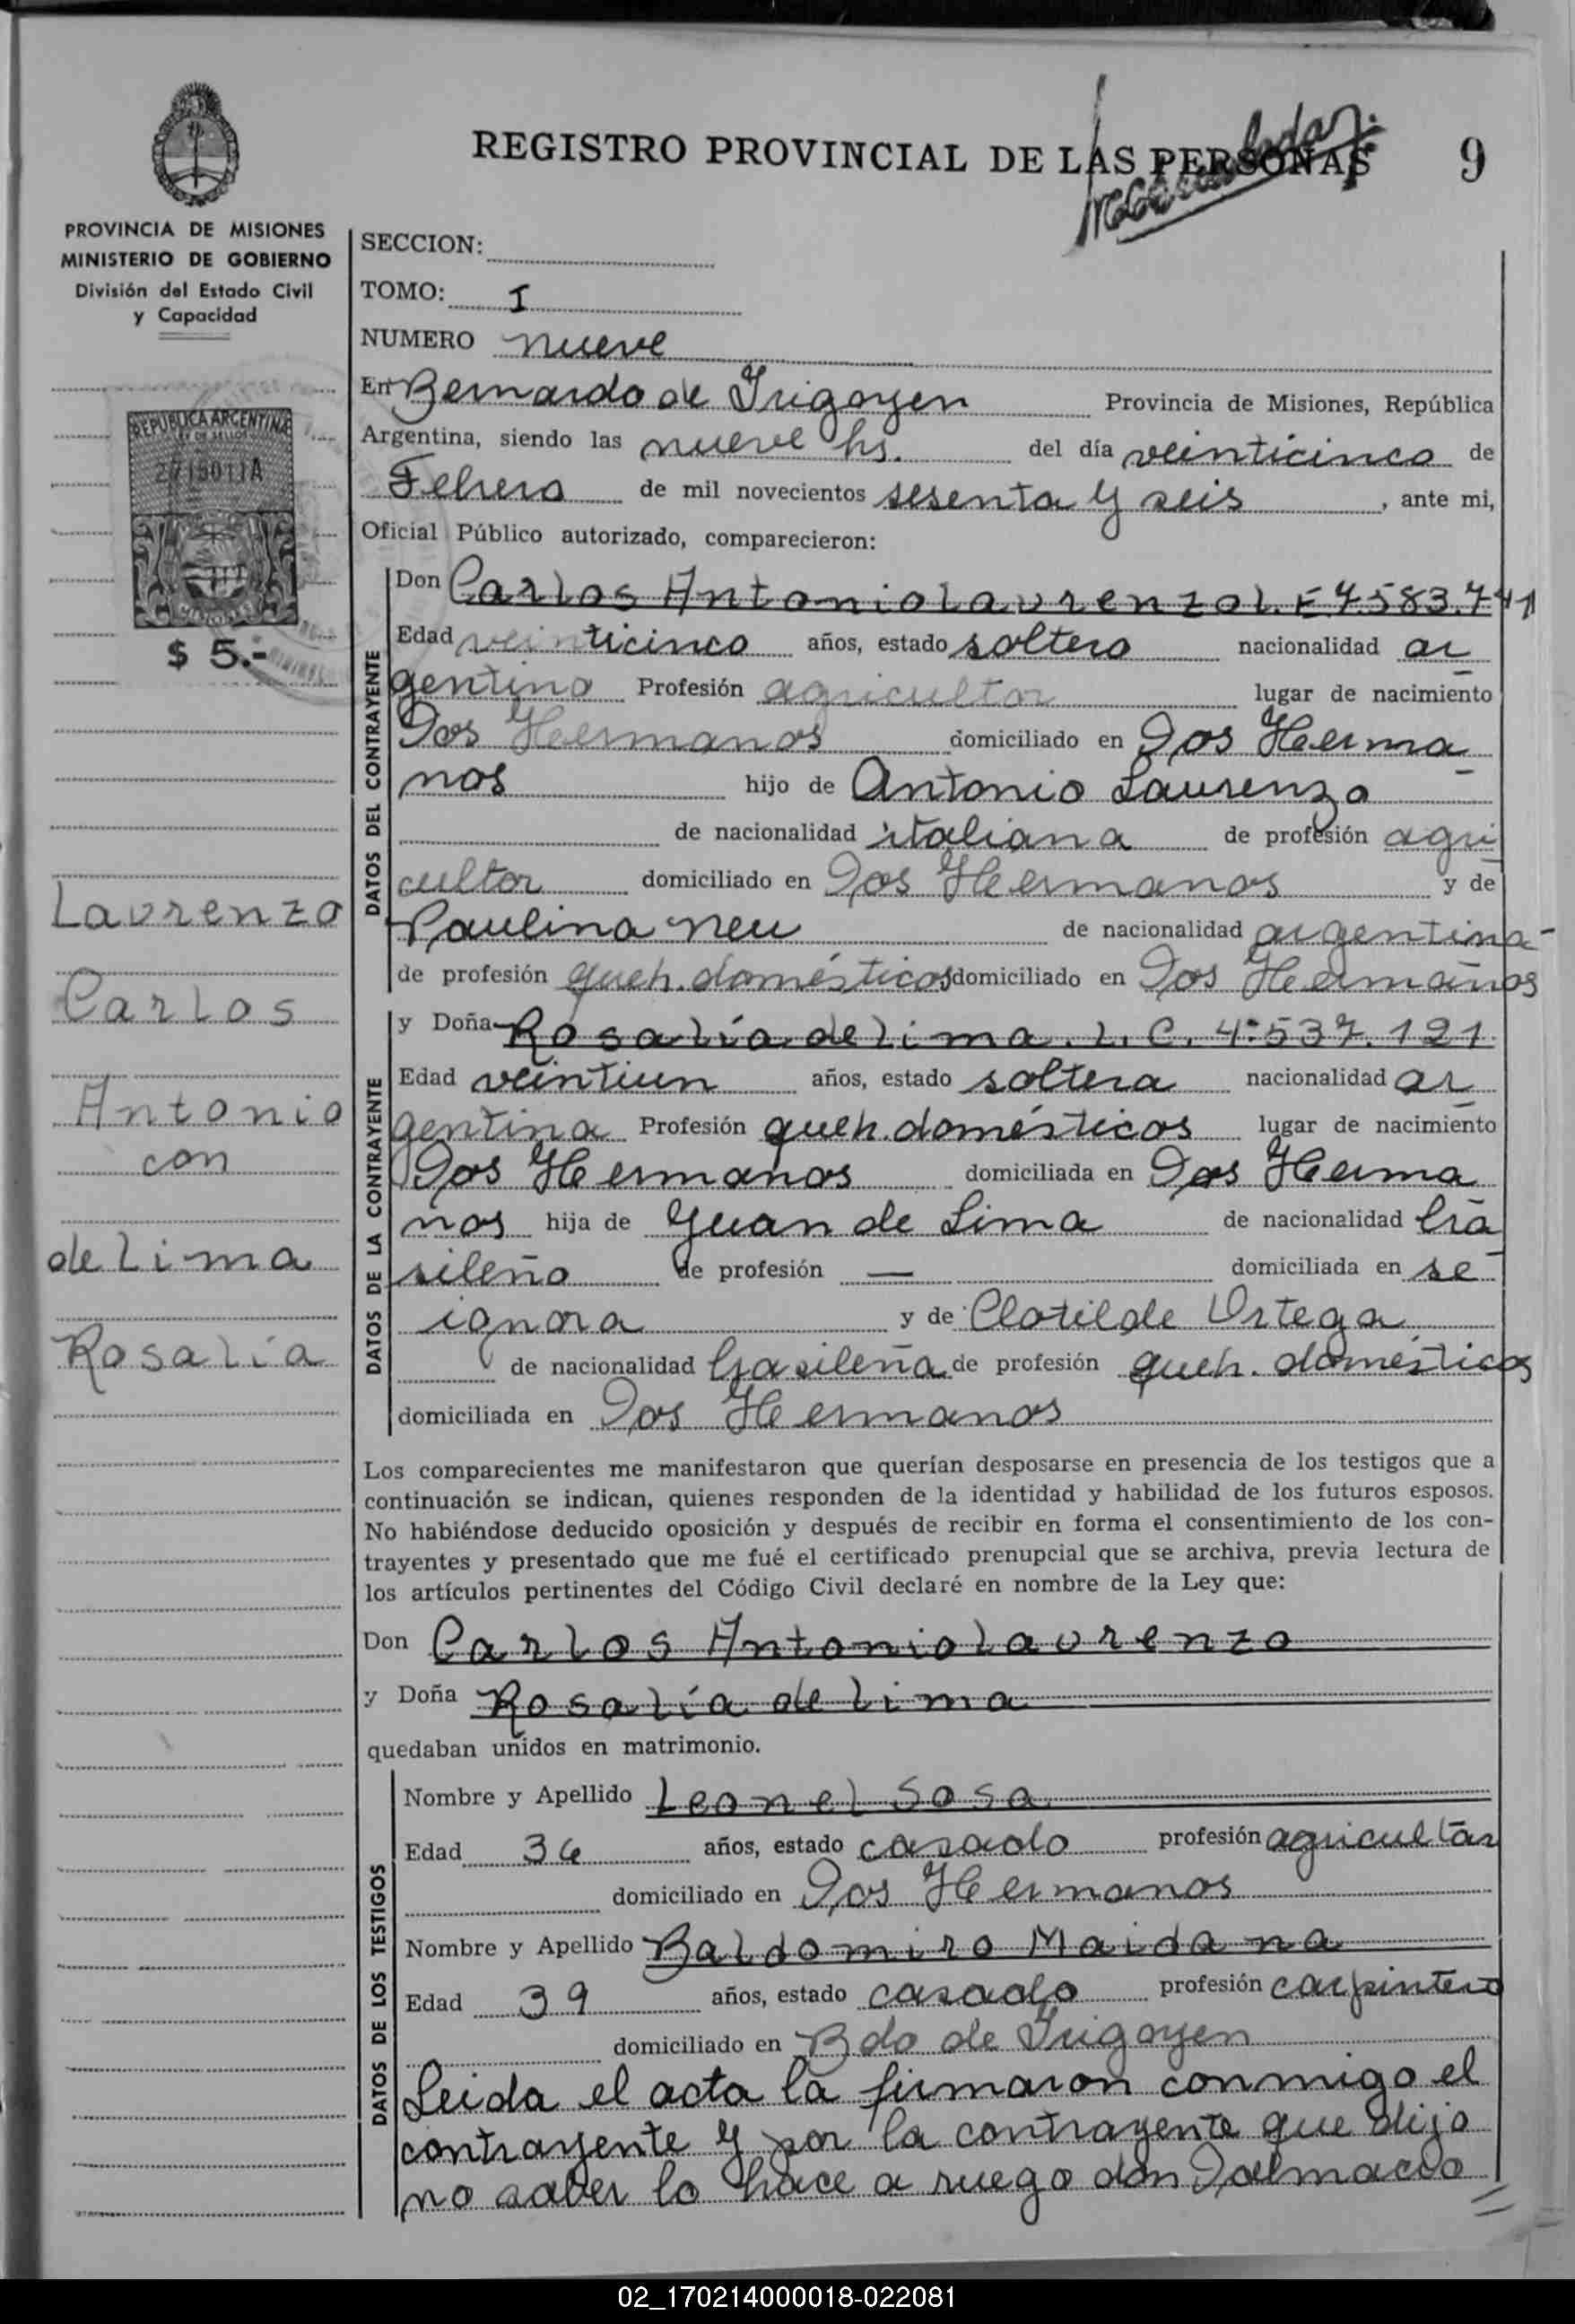 REGISTRO PROVINCIAL DE LAS PERSONAS
9
PROVINCIA DE MISIONES
MINISTERIO DE GOBIERNO
División del Estado Civil
y Capacidad
REPUBLICA ARGENTINA
$ 5.-
Laurenzo
Carlos
Antonio
con
de Lima
Rosalía
SECCION:
TOMO: I
NUMERO nueve
En Bernardo de Irigoyen Provincia de Misiones, República
Argentina, siendo las nueve hs. del día veinticinco de
Febrero de mil novecientos sesenta y seis, ante mi,
Oficial Público autorizado, comparecieron:
DATOS DEL CONTRAYENTE
Don Carlos Antonio Laurenzo L.E 7.583.741
Edad veinticinco años, estado soltero nacionalidad ar
gentino Profesión agricultor lugar de nacimiento
Dos Hermanos domiciliado en Dos Herma
nos hijo de Antonio Laurenzo
de nacionalidad italiana de profesión agri
cultor domiciliado en Dos Hermanos y de
Paulina Neu de nacionalidad argentina-
de profesión queh. domésticos domiciliado en Dos Hermanos
DATOS DE LA CONTRAYENTE
y Doña Rosalía de Lima. L. C. 4:537.121
Edad veintiun años, estado soltera nacionalidad ar
gentina Profesión queh. domésticos lugar de nacimiento
Dos Hermanos domiciliada en Dos Herma
nos hija de Juan de Lima de nacionalidad bra
sileño de profesión — domiciliada en se
ignora y de Clotilde Ortega
de nacionalidad brasileña de profesión queh. domésticos
domiciliada en Dos Hermanos
Los comparecientes me manifestaron que querían desposarse en presencia de los testigos que a
continuación se indican, quienes responden de la identidad y habilidad de los futuros esposos.
No habiéndose deducido oposición y después de recibir en forma el consentimiento de los con-
trayentes y presentado que me fué el certificado prenupcial que se archiva, previa lectura de
los artículos pertinentes del Código Civil declaré en nombre de la Ley que:
Don Carlos Antonio Laurenzo
y Doña Rosalía de Lima
quedaban unidos en matrimonio.
DATOS DE LOS TESTIGOS
Nombre y Apellido Leonel Sosa
Edad 36 años, estado casado profesión agricultor
domiciliado en Dos Hermanos
Nombre y Apellido Baldomiro Maidana
Edad 39 años, estado casado profesión carpintero
domiciliado en Bdo de Irigoyen
Leida el acta la firmaron conmigo el
contrayente y por la contrayente que dijo
no saber lo hace a ruego don Dalmacio
02_170214000018-022081